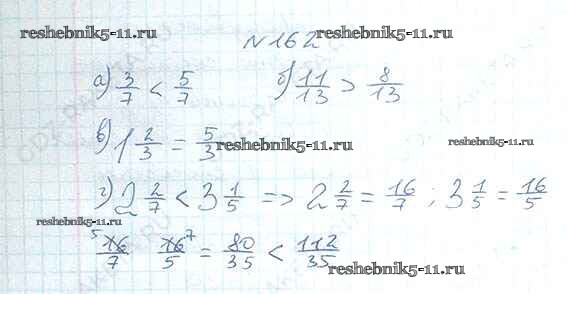 reshebnik5-11.ru №162 reshebnik5-11.ru
а) 3/7 < 5/7 б) 11/13 > 8/13
в) 1 2/3 = 5/3 reshebnik5-11.ru reshebnik5-11.ru
г) 2 2/7 < 3 1/5 => 2 2/7 = 16/7 ; 3 1/5 = 16/5
reshebnik5-11.ru
⁵16/7 16⁷/5 = 80/35 < 112/35
reshebnik5-11.ru